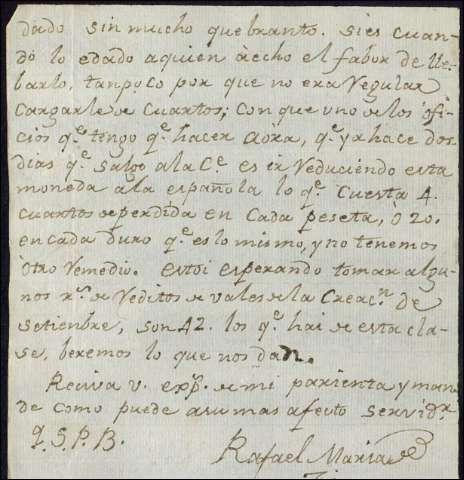 dado sin mucho quebranto. Si es cuan-
do lo e dado a quien à echo el fabor de lle-
barlo, tanpoco por que no era Regular
Cargarle de Cuartos; con que uno de los ofi-
cios q.e tengo q.e hacer aora, q.e ya hace dos
dias q.e salgo a la C.e es ir Reduciendo esta
moneda a la española lo q.e Cuesta 4.
cuartos de perdida en Cada peseta, o 20.
en cada duro q.e es lo mismo, y no tenemos
otro Remedio. Estoi esperando tomar algu-
nos r.s de Reditos de vales de la Creac.n de
setiembre, son 42. los q.e hai de esta cla-
se, beremos lo que nos dan.
Reciva v. exp.s de mi parienta y man-
de como puede a su mas afecto servid.r
q. S. P. B.
Rafael Maria